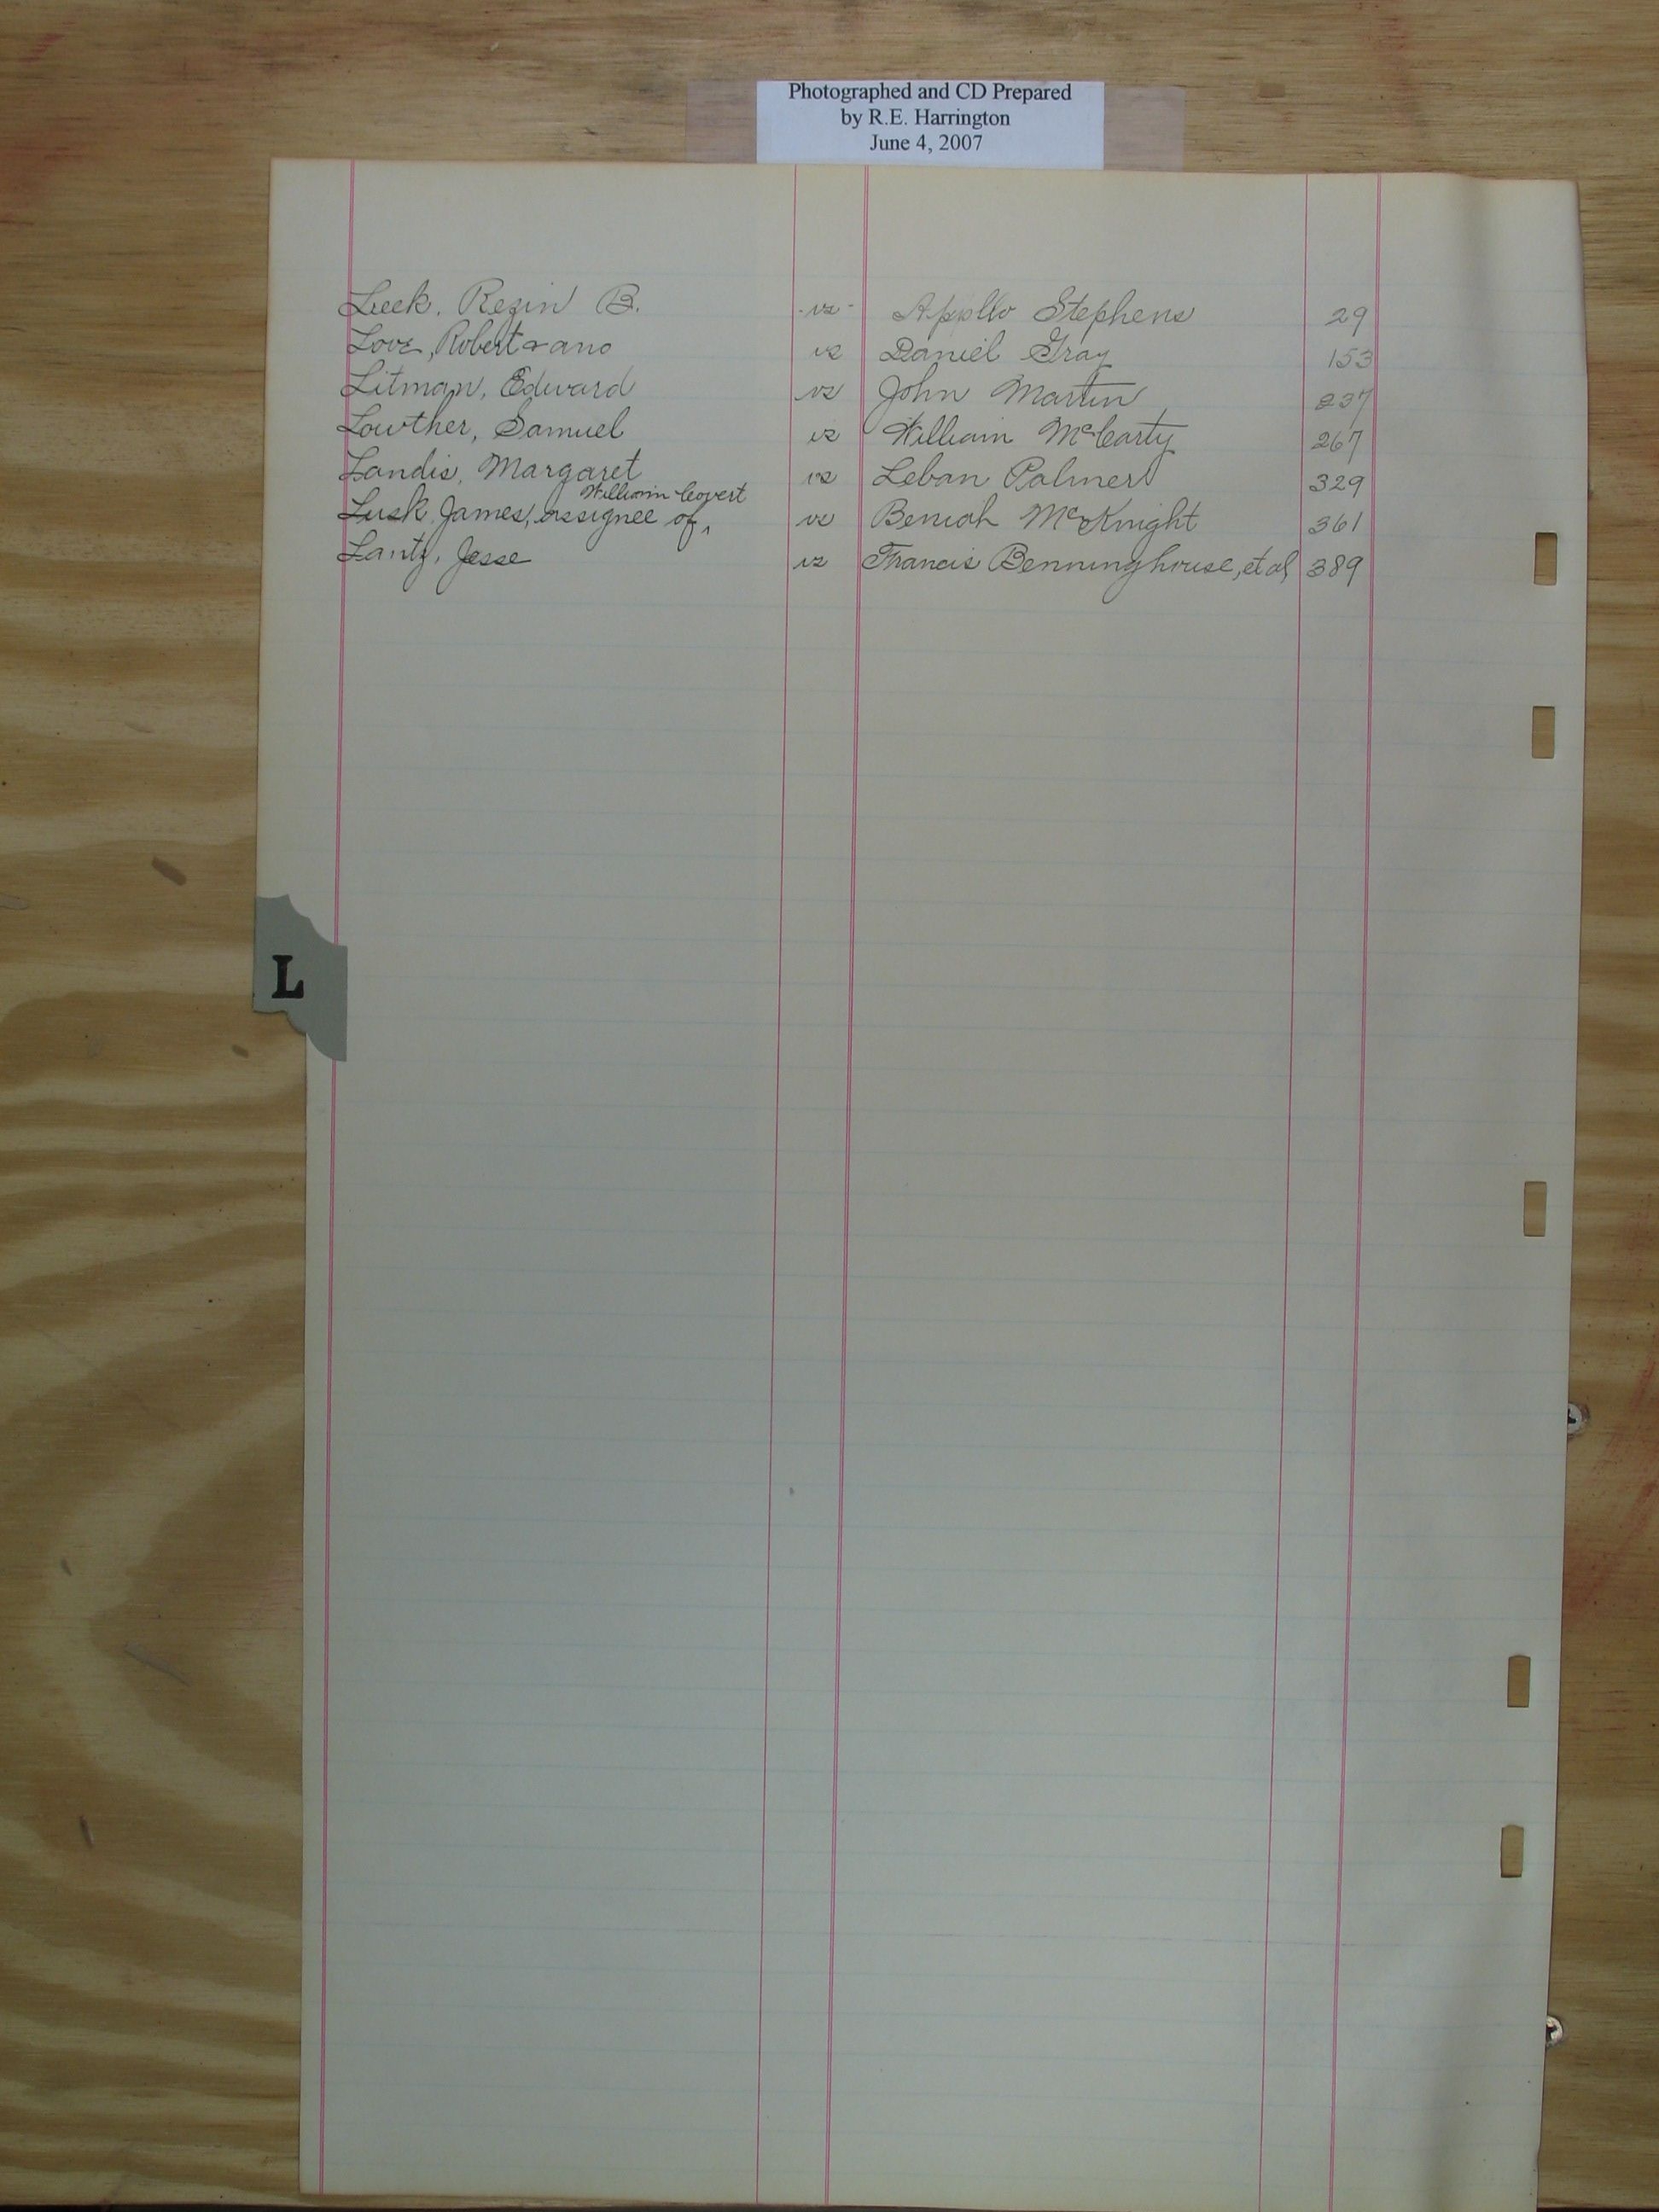 Photographed and CD Prepared
by R.E. Harrington
June 4, 2007
Leek, Rezin B. -vs- Apollo Stephens 29
Love, Robert & ano vs Daniel Gray 153
Litman, Edward vs John Martin 237
Lowther, Samuel vs William McCarty 267
Landis, Margaret vs Leban Palmer 329
William Covert
Lusk James, assignee of, vs Beniah McKnight 361
Lantz, Jesse vs Francis Benninghouse, et al, 389
L